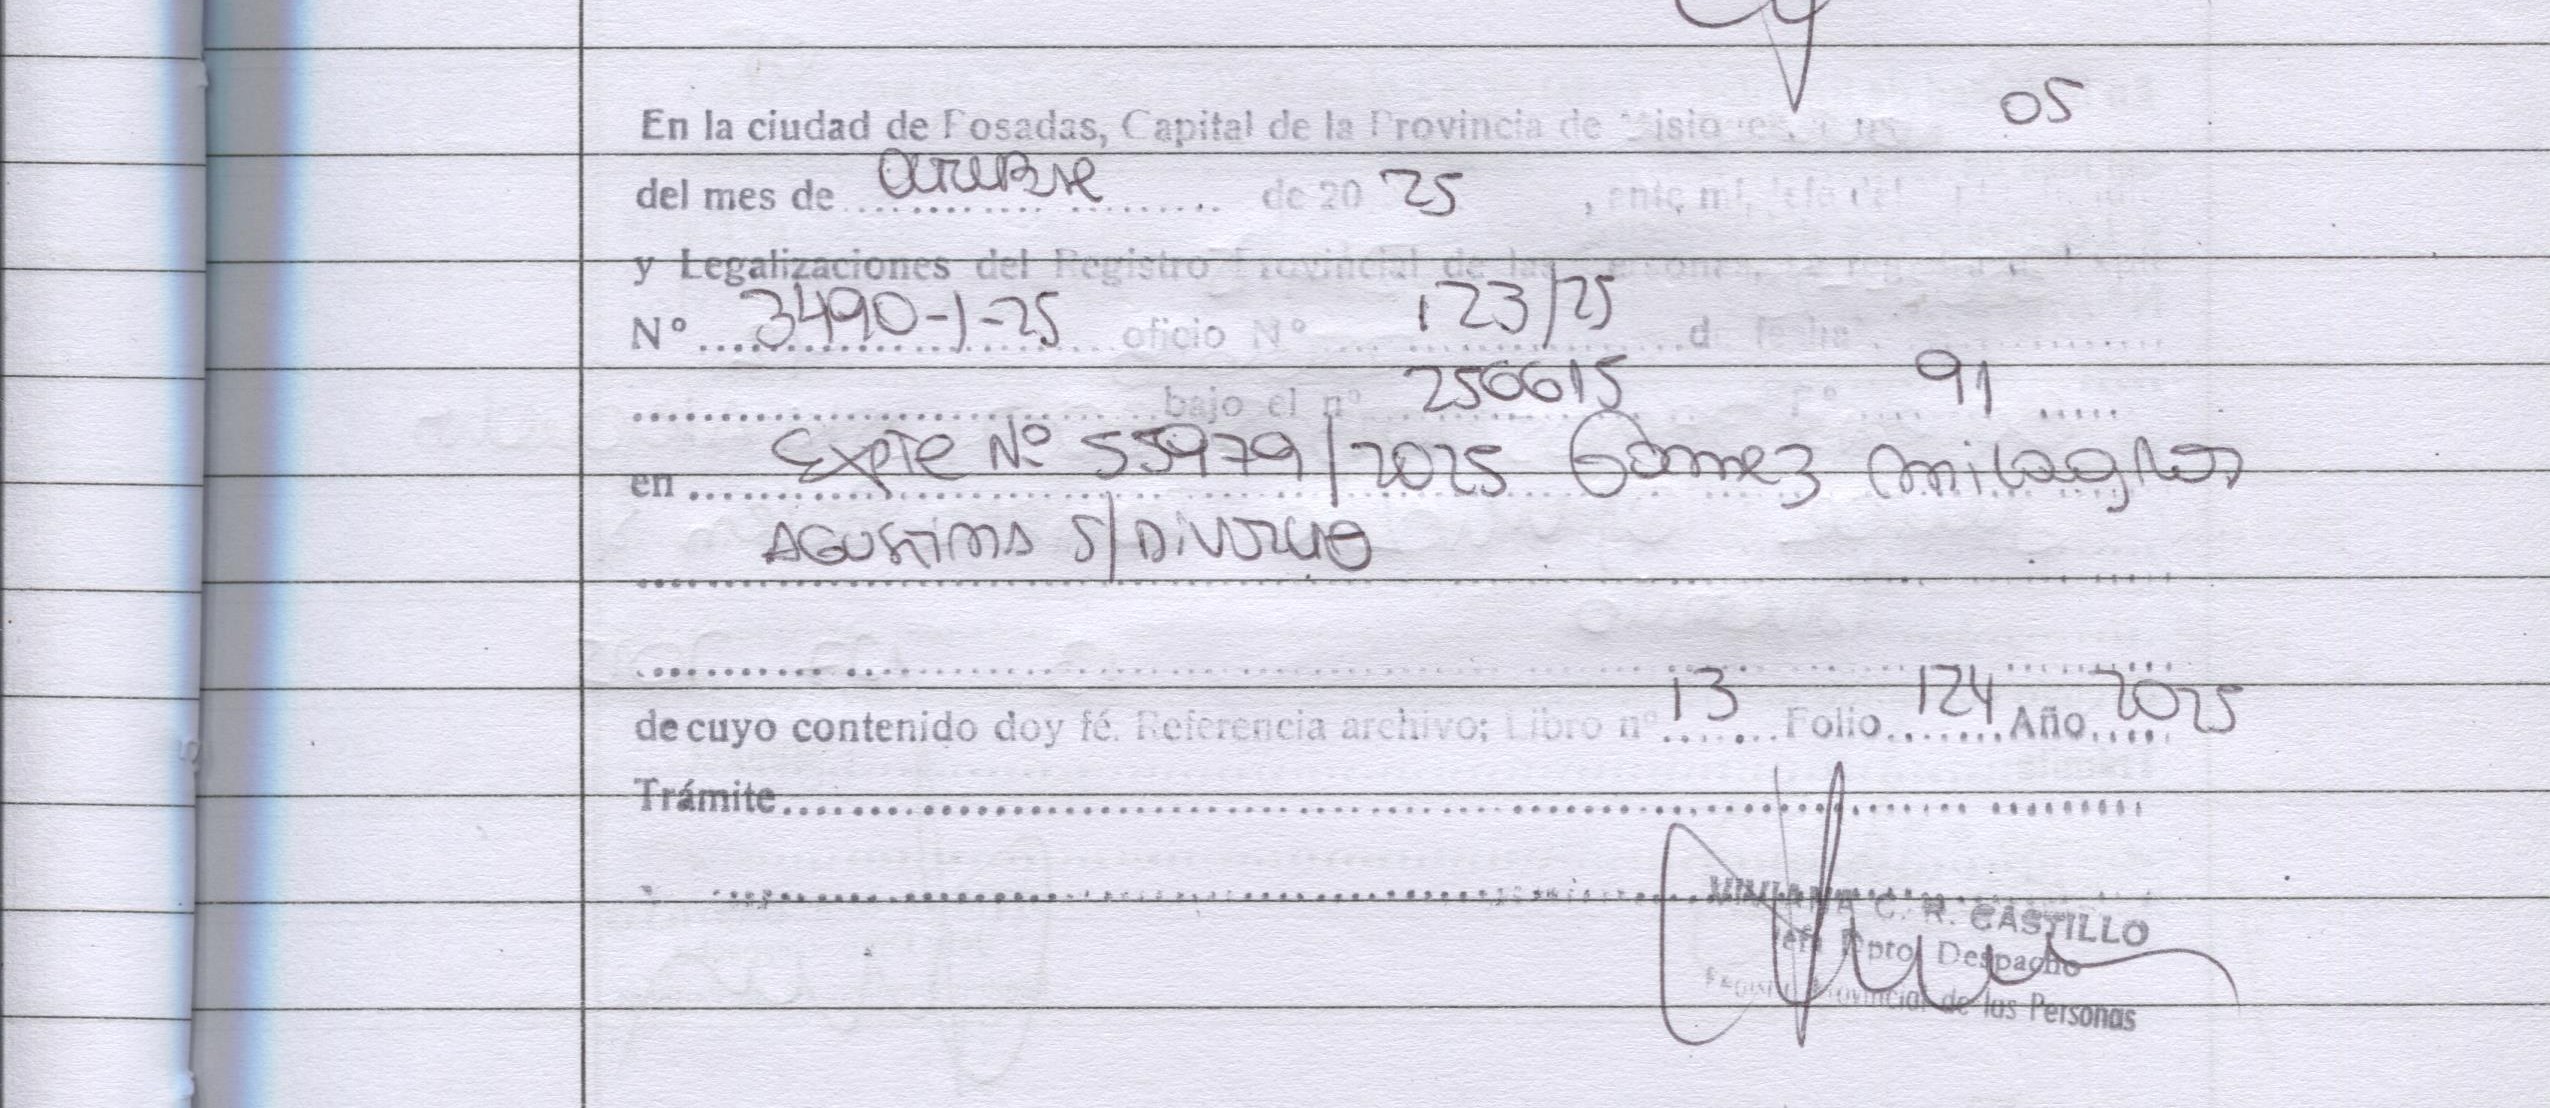 En la ciudad de Posadas, Capital de la Provincia de Misiones, 05
del mes de octubre de 20 25 , ante mi, Jefe del
y Legalizaciones del Registro Provincial de las Personas, se registra
Nº 3490-1-25 oficio Nº 123/25 de fecha
bajo el nº 250615 Fº 91
en Expte Nº 55979/2025 Gomez milagros
AGUSTINA S/DIVORCIO
de cuyo contenido doy fé. Referencia archivo; Libro nº 13 Folio 124 Año 2025
Trámite
VIVIANA C. R. CASTILLO
Jefa Dpto. Despacho
Registro Provincial de las Personas